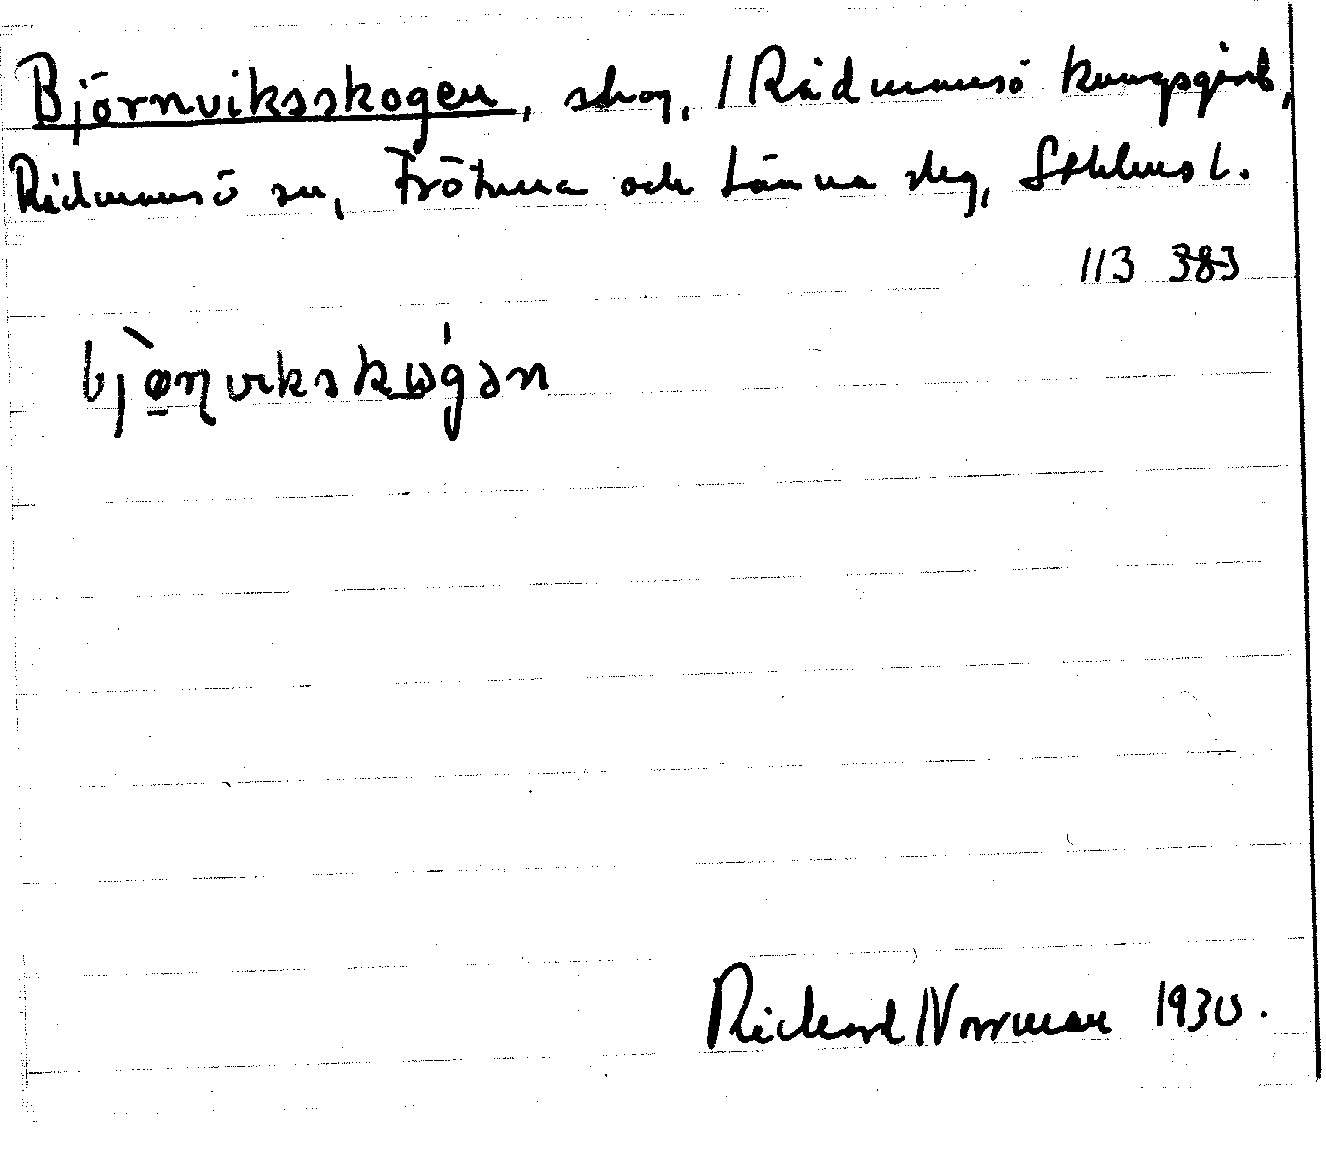 Björnviksskogen, skog, / Rådmansö kungsgård,
Rådmansö sn, Frötuna och Länna skg, Sthlms l.
113 383
bjø̀ṇvikskωgən
Richard Norrman 1930.